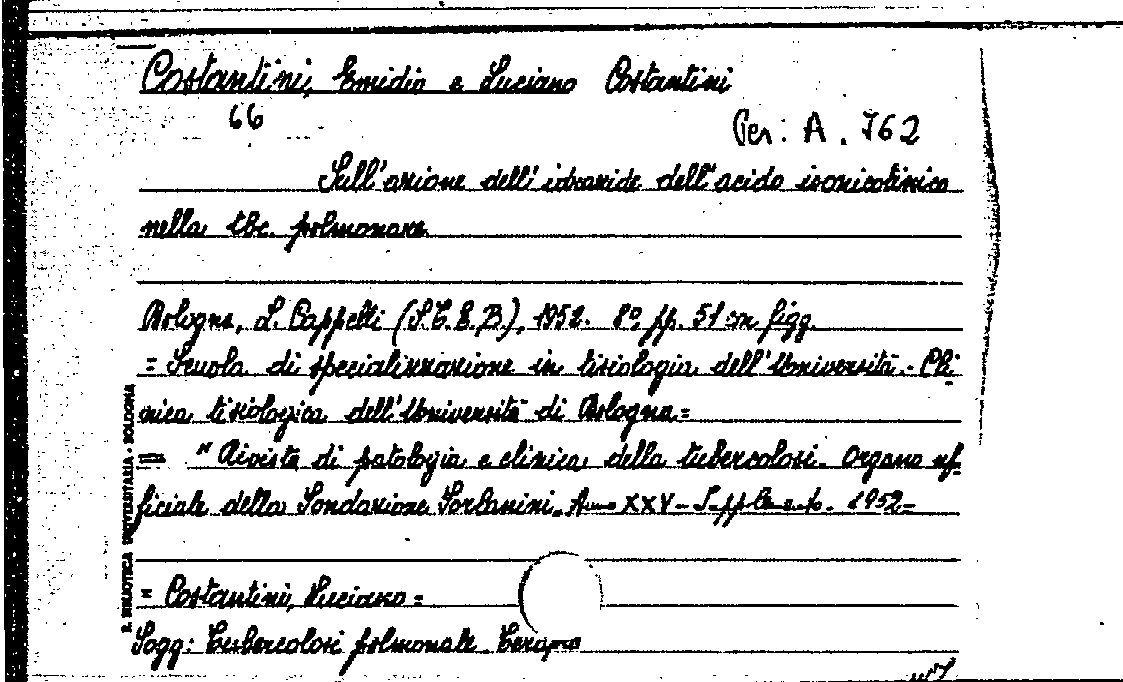 Costantini, Emidio e Luciano Costantini
66
Per: A. 762
Sull'azione dell'idrazide dell'acido isonicotinico
nella tbc. polmonare
Bologna, L. Cappelli (S.T.E.B.), 1952. 8º pp. 51 con figg.
= Scuola di specializzazione in tisiologia dell'Università.- Cli-
nica tisiologica dell'Università di Bologna=
= "Rivista di patologia e clinica della tubercolosi. Organo uf-
ficiale della Fondazione Forlanini. Anno XXV - Supplemento. 1952=
= Costantini, Luciano =
Sogg: Tubercolosi polmonale. Terapia
R. BIBLIOTECA UNIVERSITARIA - BOLOGNA